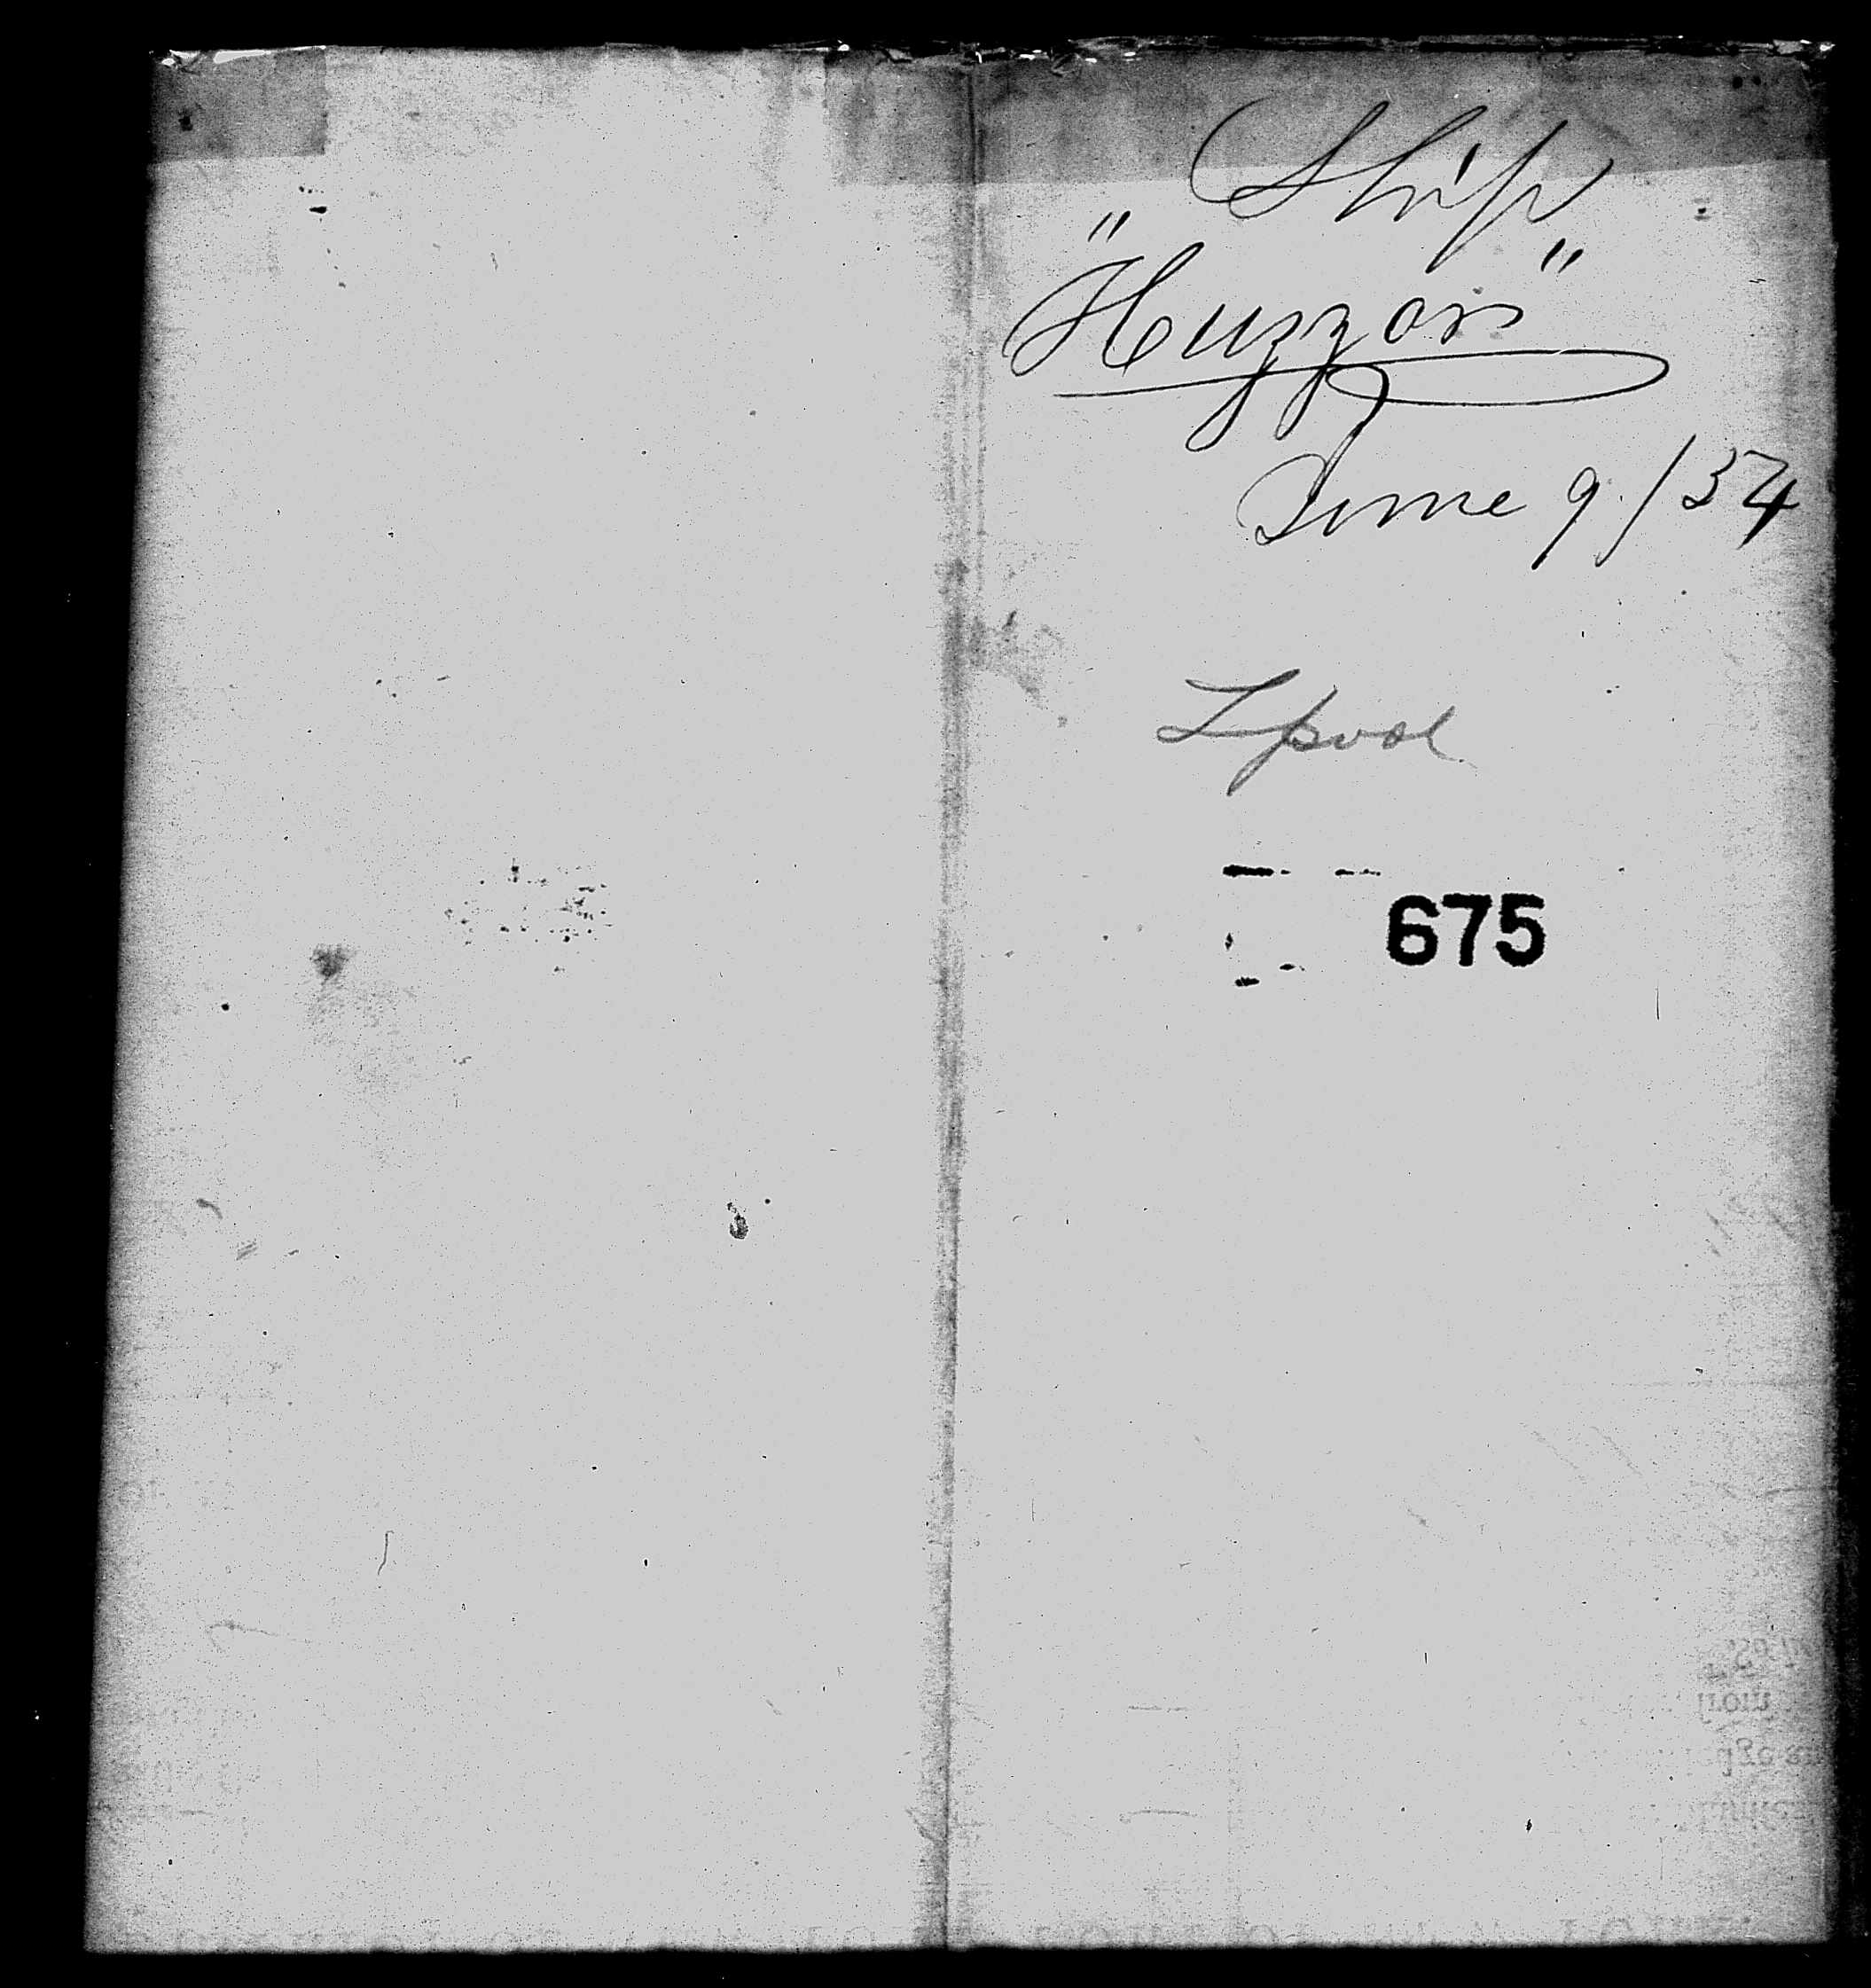 Ship
"Huzzar"
June 9./54
Lpool
675